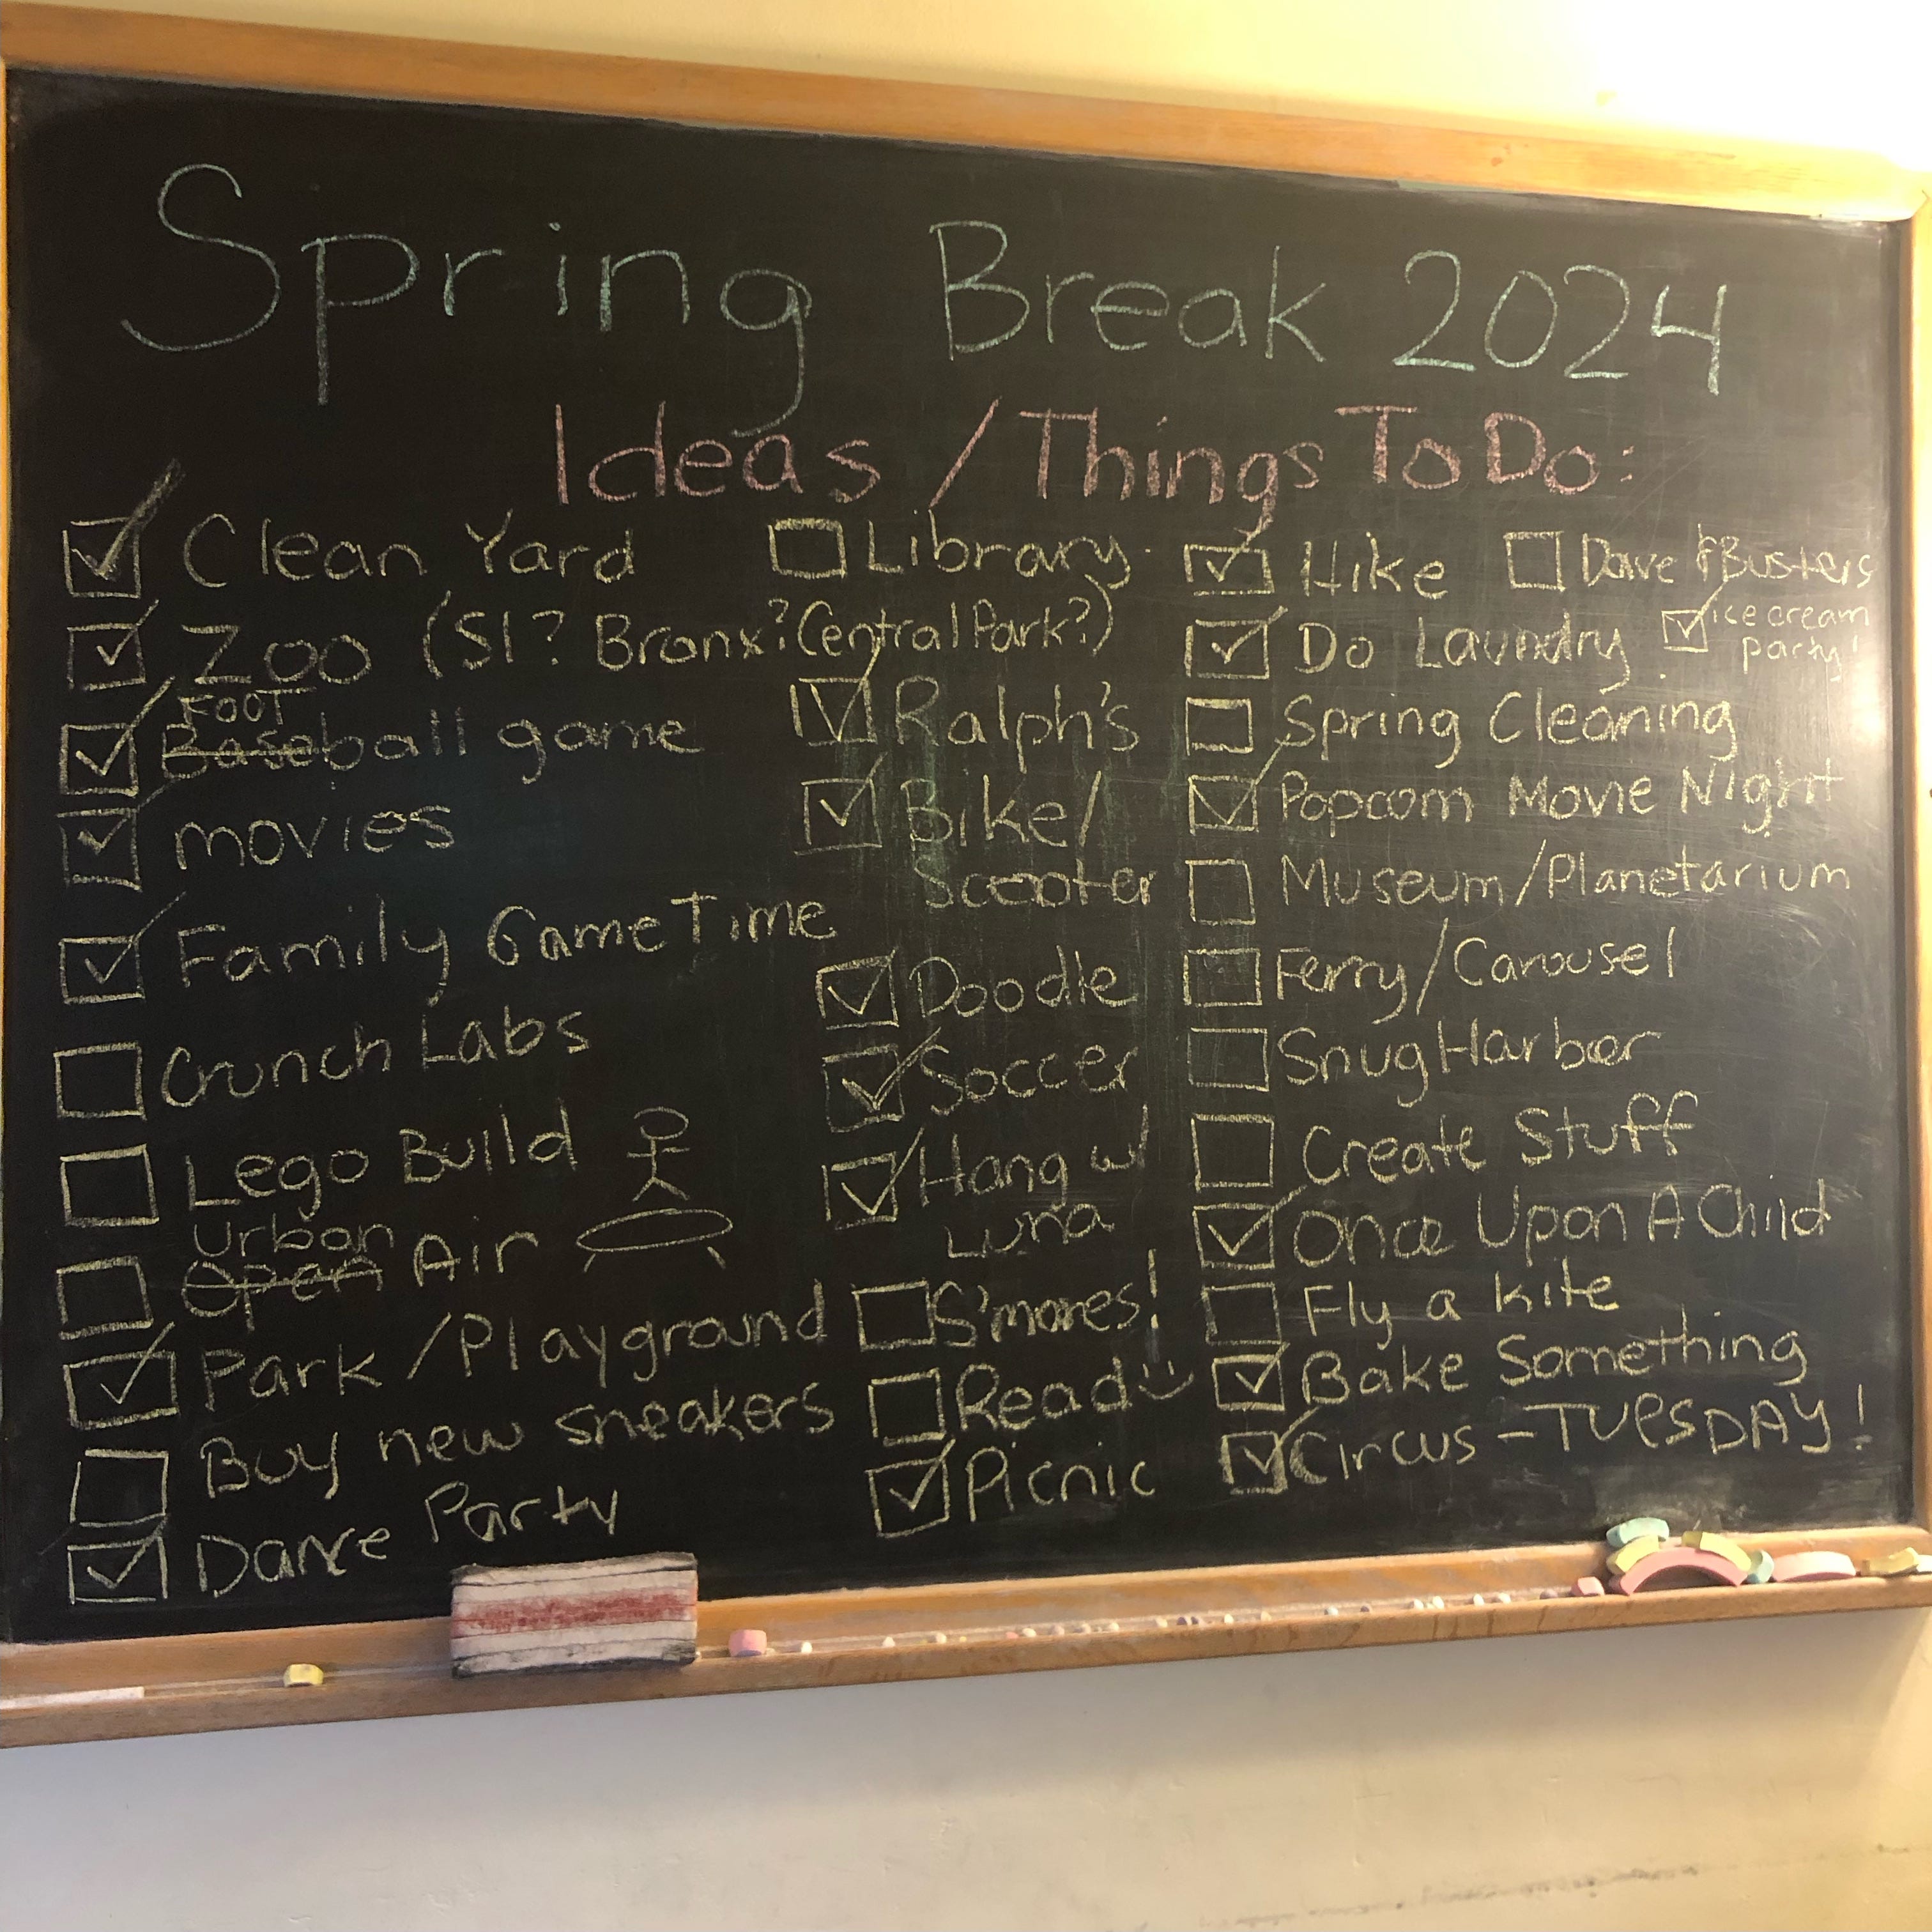 Spring Break 2024
Ideas / Things To Do:
Clean Yard
Zoo (SI? Bronx? Central Park?)
FOOT
Baseball game
movies
Family Game Time
Crunch Labs
Lego Build
Urban
Open Air
Park / Playground
Buy new sneakers
Dance Party
Library
Ralph's
Bike/
Scooter
Doodle
Soccer
Hang w/
Luna
S'mores!
Read :)
Picnic
Hike
Do Laundry
Spring Cleaning
Popcorn Movie Night
Museum/Planetarium
Ferry/Carousel
Snug Harbor
Create Stuff
Once Upon A Child
Fly a kite
Bake Something
Circus - TUESDAY!
Dave & Busters
ice cream
party!